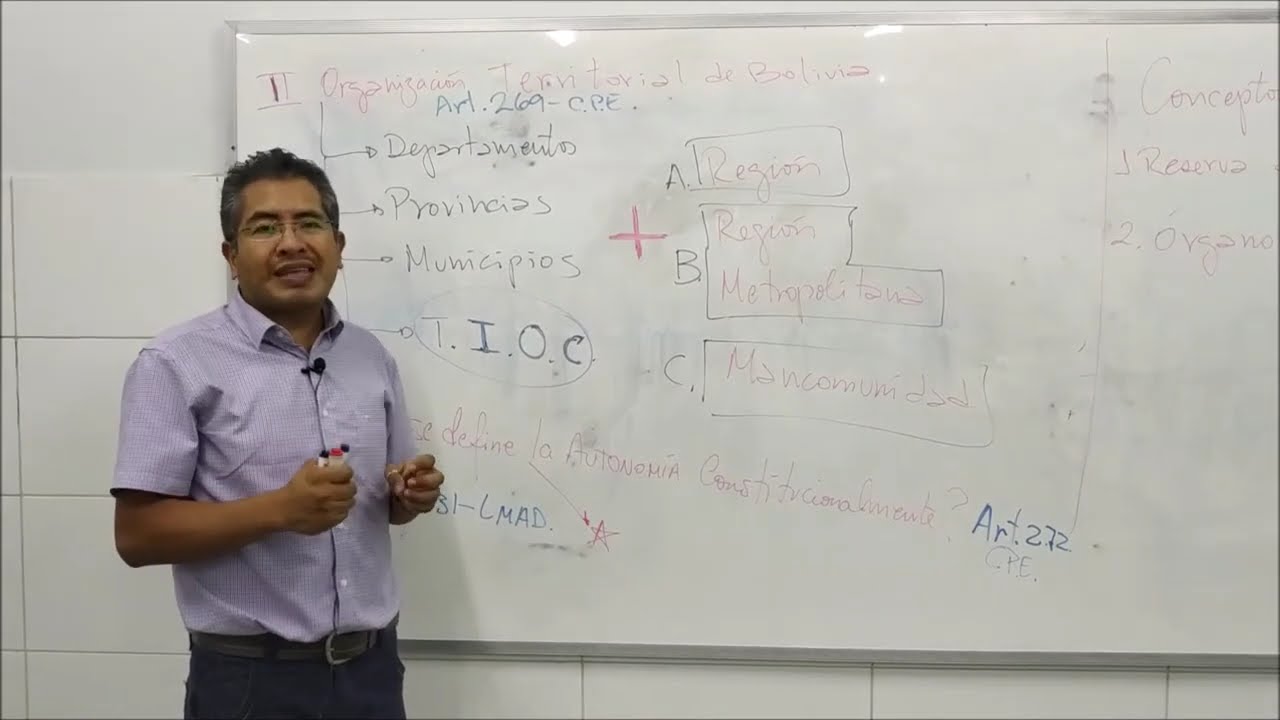 II Organización Territorial de Bolivia
Art. 269 - C.P.E.
Departamentos
Provincias
Municipios
T. I. O. C.
+
A. Región
B. Región
Metropolitana
C. Mancomunidad
se define la AUTONOMÍA Constitucionalmente?
31 - LMAD.
Art. 272
C.P.E.
Concepto
1 Reserva
2. Órgano